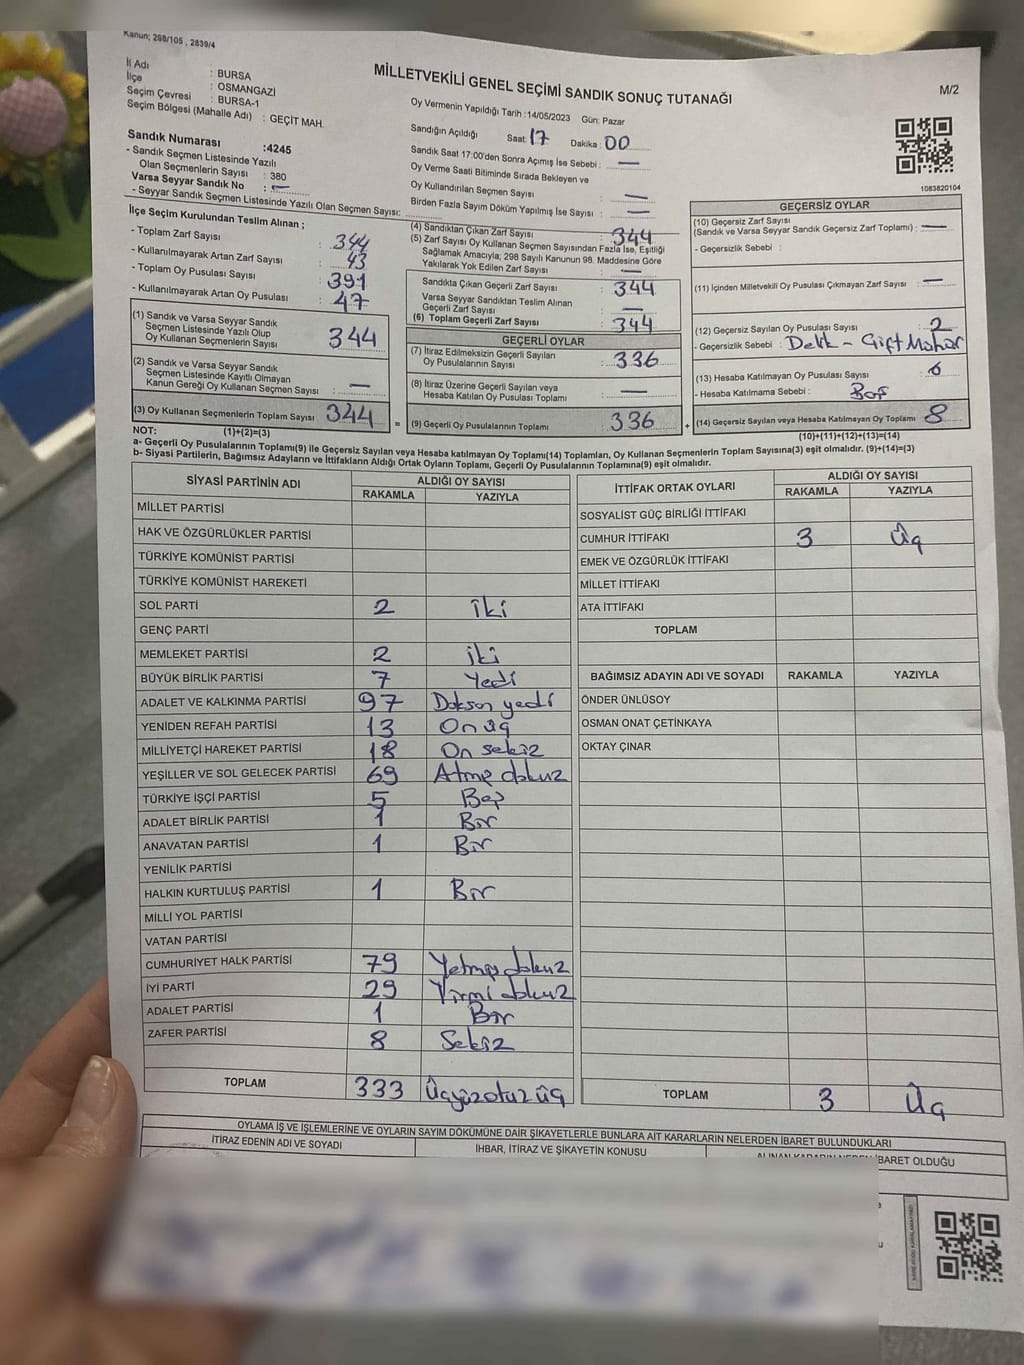 Kanun; 298/105 , 2839/4
İl Adı : BURSA
İlçe : OSMANGAZİ
Seçim Çevresi : BURSA-1
Seçim Bölgesi (Mahalle Adı) : GEÇİT MAH.
MİLLETVEKİLİ GENEL SEÇİMİ SANDIK SONUÇ TUTANAĞI
M/2
Oy Vermenin Yapıldığı Tarih :14/05/2023 Gün: Pazar
Sandığın Açıldığı Saat: 17 Dakika: 00
Sandık Saat 17:00'den Sonra Açımış İse Sebebi : —
Oy Verme Saati Bitiminde Sırada Bekleyen ve
Oy Kullandırılan Seçmen Sayısı : —
Birden Fazla Sayım Döküm Yapılmış İse Sayısı : —
1083820104
Sandık Numarası :4245
- Sandık Seçmen Listesinde Yazılı
Olan Seçmenlerin Sayısı : 380
Varsa Seyyar Sandık No : —
- Seyyar Sandık Seçmen Listesinde Yazılı Olan Seçmen Sayısı:
İlçe Seçim Kurulundan Teslim Alınan ;
- Toplam Zarf Sayısı : 344
- Kullanılmayarak Artan Zarf Sayısı : 43
- Toplam Oy Pusulası Sayısı : 391
- Kullanılmayarak Artan Oy Pusulası : 47
(1) Sandık ve Varsa Seyyar Sandık
Seçmen Listesinde Yazılı Olup
Oy Kullanan Seçmenlerin Sayısı : 344
(2) Sandık ve Varsa Seyyar Sandık
Seçmen Listesinde Kayıtlı Olmayan
Kanun Gereği Oy Kullanan Seçmen Sayısı : —
(3) Oy Kullanan Seçmenlerin Toplam Sayısı : 344
(1)+(2)=(3)
(4) Sandıktan Çıkan Zarf Sayısı : 344
(5) Zarf Sayısı Oy Kullanan Seçmen Sayısından Fazla İse, Eşitliği
Sağlamak Amacıyla; 298 Sayılı Kanunun 98. Maddesine Göre
Yakılarak Yok Edilen Zarf Sayısı : —
Sandıkta Çıkan Geçerli Zarf Sayısı : 344
Varsa Seyyar Sandıktan Teslim Alınan
Geçerli Zarf Sayısı : —
(6) Toplam Geçerli Zarf Sayısı : 344
GEÇERLİ OYLAR
(7) İtiraz Edilmeksizin Geçerli Sayılan
Oy Pusulalarının Sayısı : 336
(8) İtiraz Üzerine Geçerli Sayılan veya
Hesaba Katılan Oy Pusulası Toplamı : —
= (9) Geçerli Oy Pusulalarının Toplamı : 336
GEÇERSİZ OYLAR
(10) Geçersiz Zarf Sayısı
(Sandık ve Varsa Seyyar Sandık Geçersiz Zarf Toplamı) : —
- Geçersizlik Sebebi :
(11) İçinden Milletvekili Oy Pusulası Çıkmayan Zarf Sayısı : —
(12) Geçersiz Sayılan Oy Pusulası Sayısı : 2
- Geçersizlik Sebebi : Delik - Çift Mühür
(13) Hesaba Katılmayan Oy Pusulası Sayısı : 6
- Hesaba Katılmama Sebebi : Boş
+ (14) Geçersiz Sayılan veya Hesaba Katılmayan Oy Toplamı : 8
(10)+(11)+(12)+(13)=(14)
NOT:
a- Geçerli Oy Pusulalarının Toplamı(9) ile Geçersiz Sayılan veya Hesaba katılmayan Oy Toplamı(14) Toplamları, Oy Kullanan Seçmenlerin Toplam Sayısına(3) eşit olmalıdır. (9)+(14)=(3)
b- Siyasi Partilerin, Bağımsız Adayların ve İttifakların Aldığı Ortak Oyların Toplamı, Geçerli Oy Pusulalarının Toplamına(9) eşit olmalıdır.
SİYASİ PARTİNİN ADI ALDIĞI OY SAYISI
RAKAMLA YAZIYLA
MİLLET PARTİSİ
HAK VE ÖZGÜRLÜKLER PARTİSİ
TÜRKİYE KOMÜNİST PARTİSİ
TÜRKİYE KOMÜNİST HAREKETİ
SOL PARTİ 2 iki
GENÇ PARTİ
MEMLEKET PARTİSİ 2 iki
BÜYÜK BİRLİK PARTİSİ 7 Yedi
ADALET VE KALKINMA PARTİSİ 97 Doksan yedi
YENİDEN REFAH PARTİSİ 13 On üç
MİLLİYETÇİ HAREKET PARTİSİ 18 On sekiz
YEŞİLLER VE SOL GELECEK PARTİSİ 69 Atmış dokuz
TÜRKİYE İŞÇİ PARTİSİ 5 Beş
ADALET BİRLİK PARTİSİ 1 Bir
ANAVATAN PARTİSİ 1 Bir
YENİLİK PARTİSİ
HALKIN KURTULUŞ PARTİSİ 1 Bir
MİLLİ YOL PARTİSİ
VATAN PARTİSİ
CUMHURİYET HALK PARTİSİ 79 Yetmiş dokuz
İYİ PARTİ 29 Yirmi dokuz
ADALET PARTİSİ 1 Bir
ZAFER PARTİSİ 8 Sekiz
TOPLAM 333 Üçyüzotuz üç
İTTİFAK ORTAK OYLARI ALDIĞI OY SAYISI
RAKAMLA YAZIYLA
SOSYALİST GÜÇ BİRLİĞİ İTTİFAKI
CUMHUR İTTİFAKI 3 Üç
EMEK VE ÖZGÜRLÜK İTTİFAKI
MİLLET İTTİFAKI
ATA İTTİFAKI
TOPLAM
BAĞIMSIZ ADAYIN ADI VE SOYADI RAKAMLA YAZIYLA
ÖNDER ÜNLÜSOY
OSMAN ONAT ÇETİNKAYA
OKTAY ÇINAR
TOPLAM 3 Üç
OYLAMA İŞ VE İŞLEMLERİNE VE OYLARIN SAYIM DÖKÜMÜNE DAİR ŞİKAYETLERLE BUNLARA AİT KARARLARIN NELERDEN İBARET BULUNDUKLARI
İTİRAZ EDENİN ADI VE SOYADI İHBAR, İTİRAZ VE ŞİKAYETİN KONUSU ALINAN KARARIN NEDEN İBARET OLDUĞU